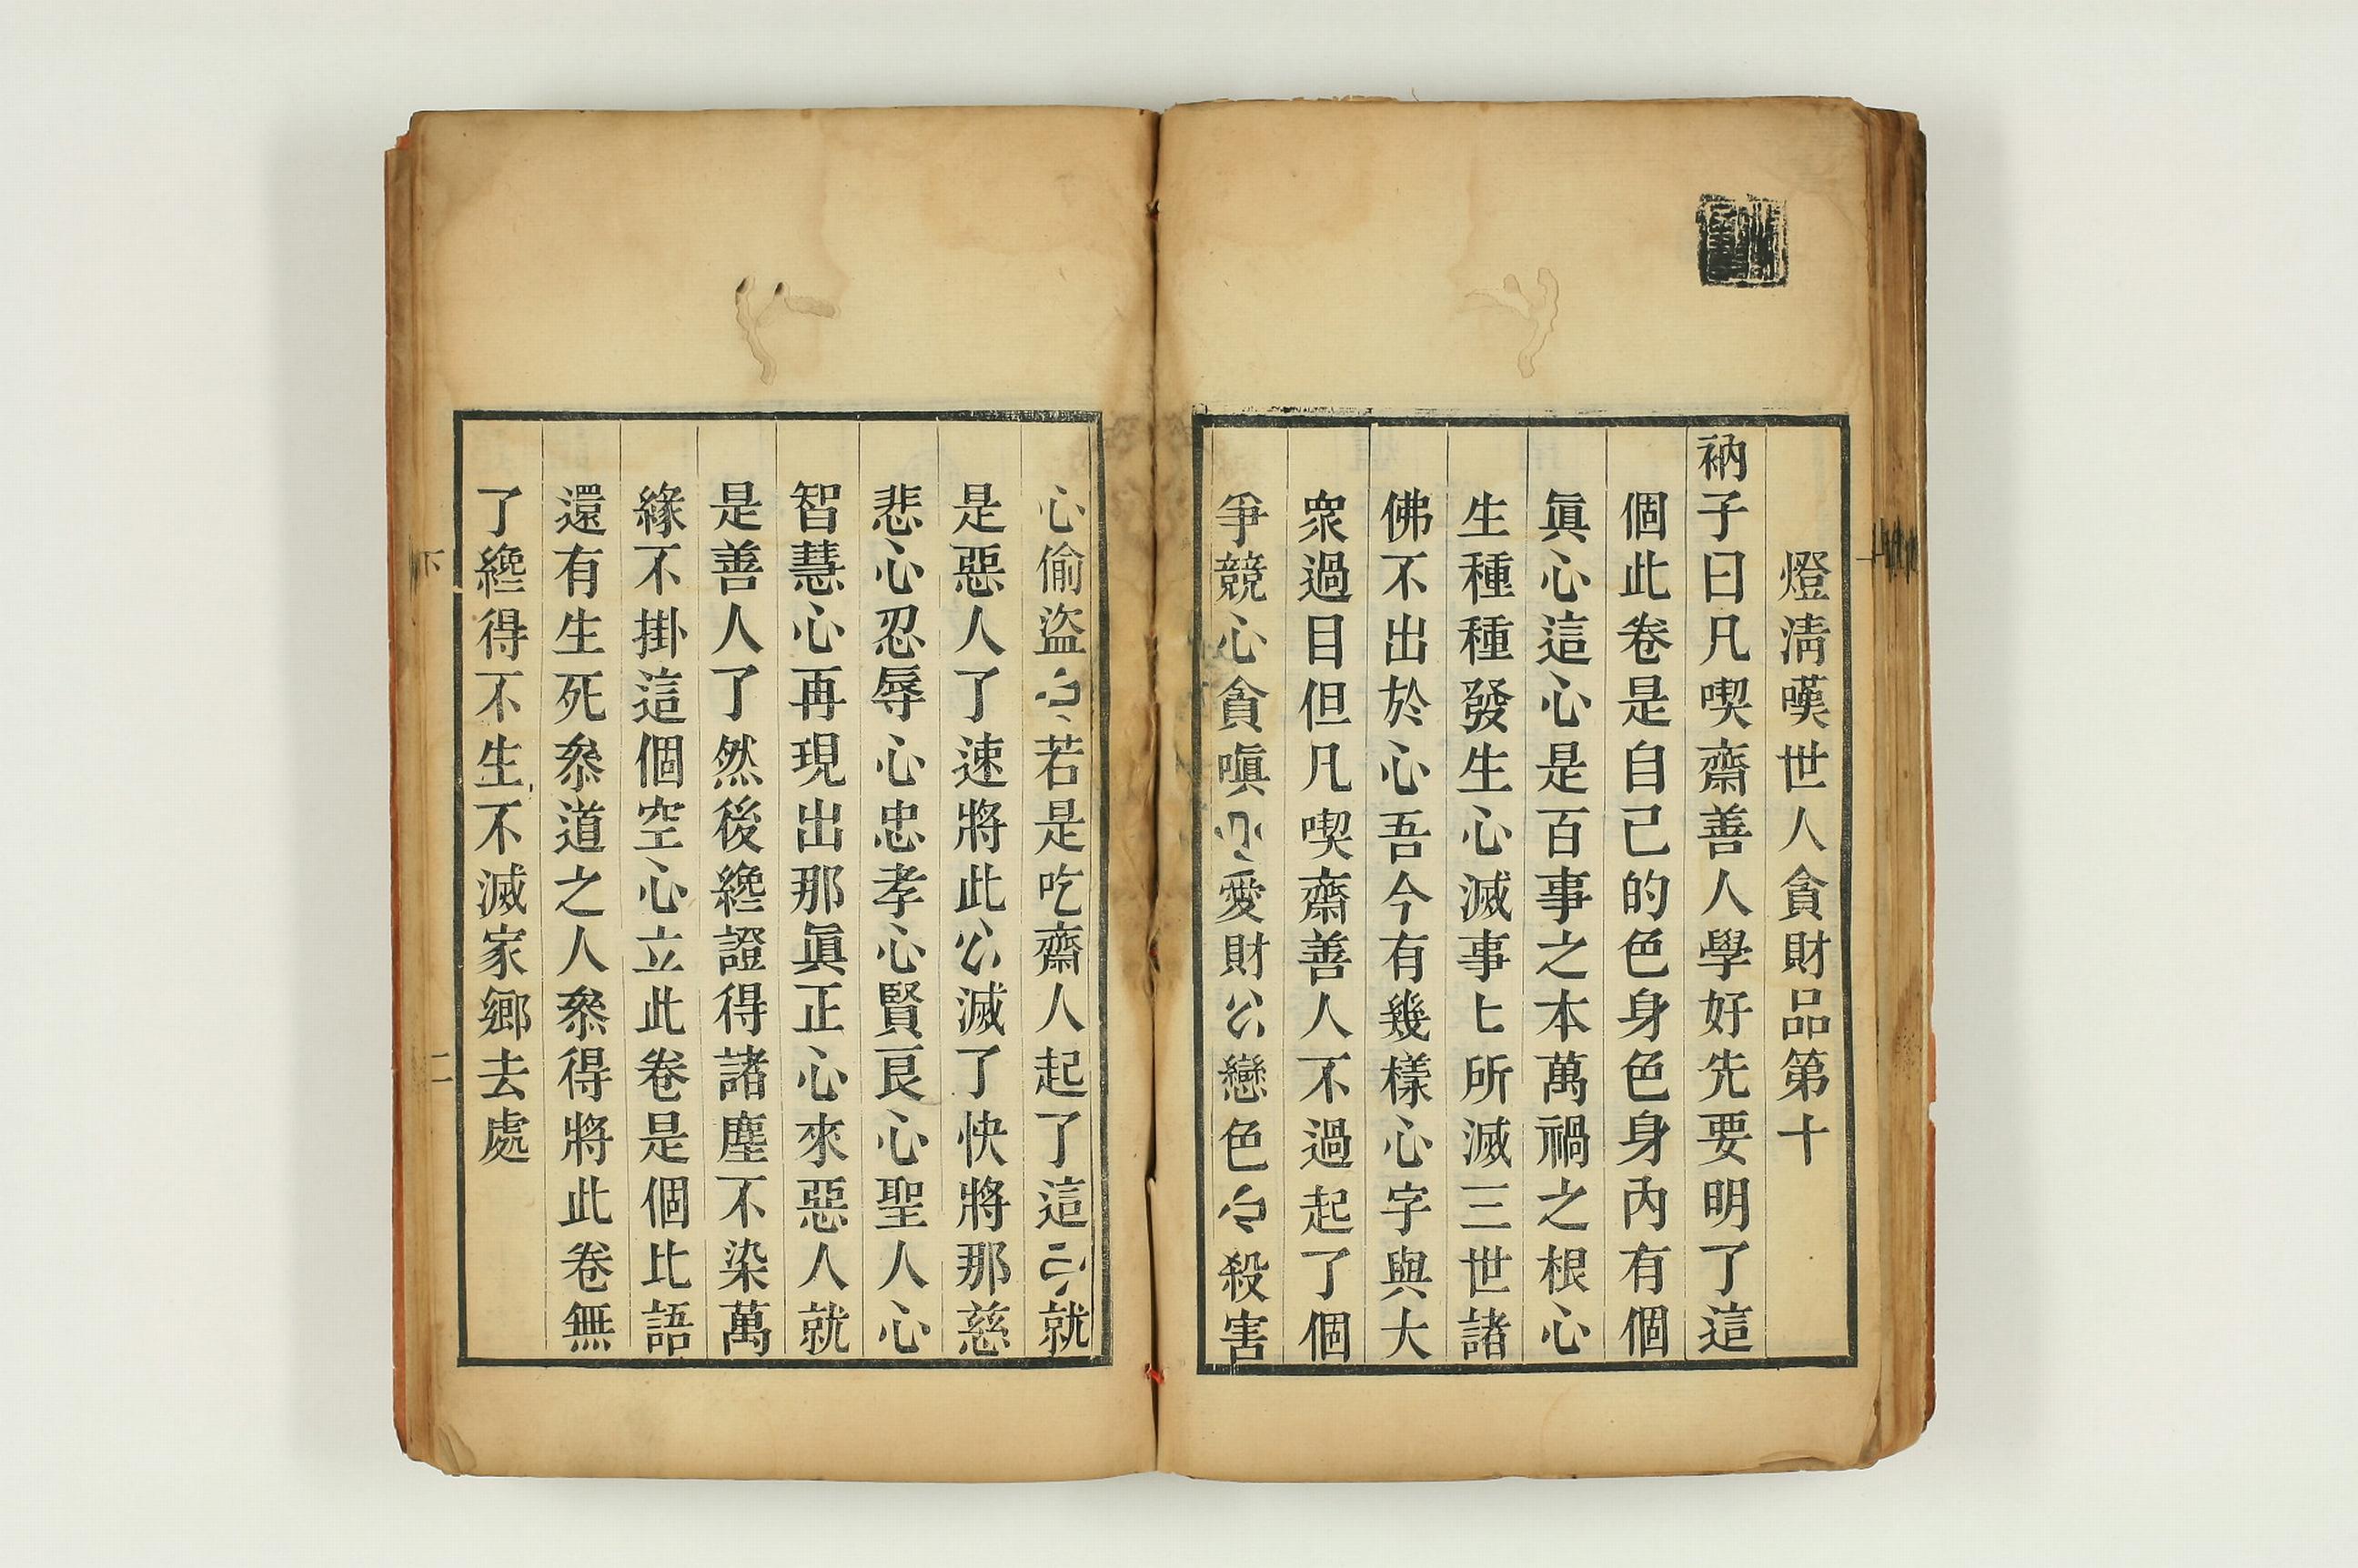 燈淸嘆世人貪財品第十
衲子曰凡喫齋善人學好先要明了這
個此卷是自己的色身色身內有個
眞心這心是百事之本萬禍之根心
生種種發生心滅事上所滅三世諸
佛不出於心吾今有幾樣心字與大
衆過目但凡喫齋善人不過起了個
爭競心貪嗔愛財戀色殺害
心偷盜若是吃齋人起了這就
是惡人了速將此滅了快將那慈
悲心忍辱心忠孝心賢良心聖人心
智慧心再現出那眞正心來惡人就
是善人了然後纔證得諸塵不染萬
緣不掛這個空心立此卷是個比語
還有生死叅道之人叅得將此卷無
了纔得不生不滅家鄉去處
下
二